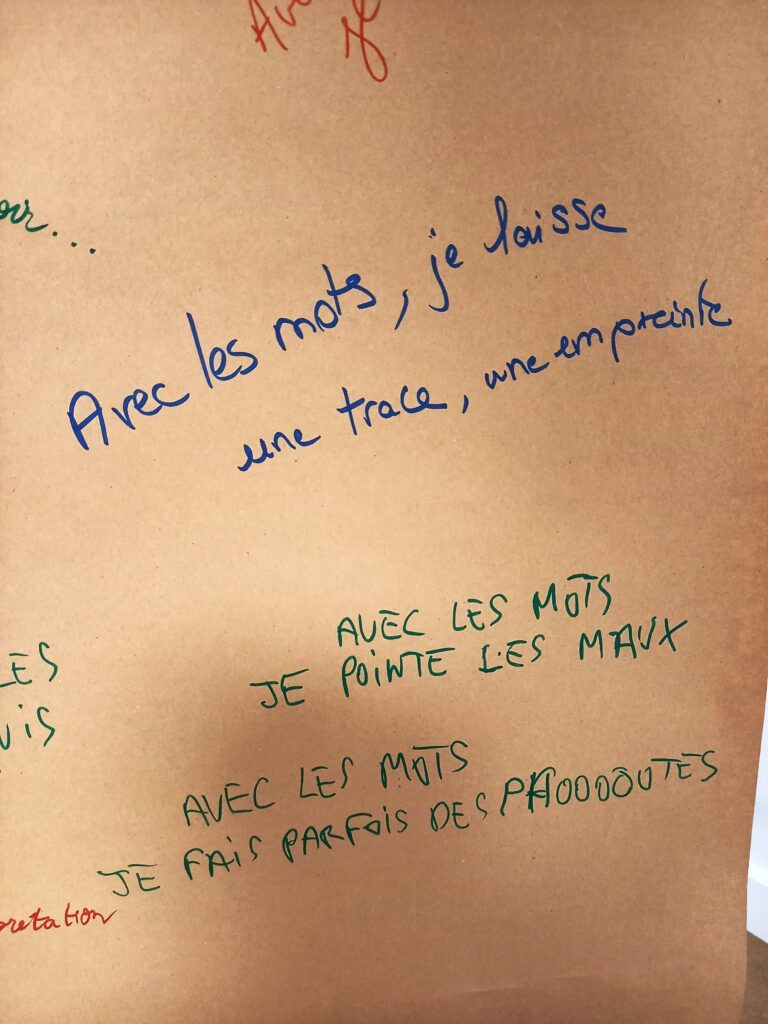 je
Avec les mots, je laisse
une trace, une empreinte
AVEC LES MOTS
JE POINTE LES MAUX
LES
AVEC LES MOTS
JE FAIS PARFOIS DES PHOOOOUTES